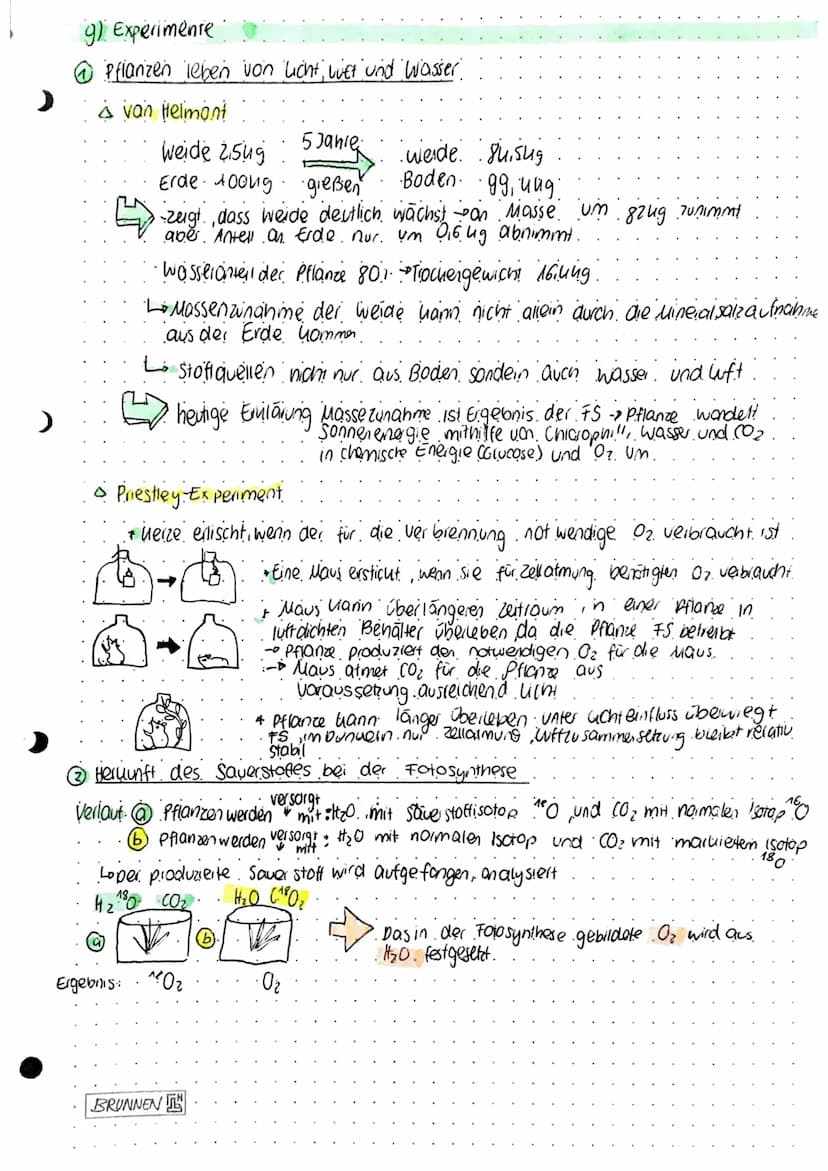 g) Experimente
① Pflanzen leben von Licht, Luft und Wasser
△ van Helmont
Weide 2,5kg 5 Jahre gießen Weide 84,5kg
Erde 100kg Boden 99,4kg
-zeigt, dass Weide deutlich wächst → an Masse um 82kg zunimmt
aber Anteil an Erde nur um 0,6kg abnimmt
Wasseranteil der Pflanze 80% → Trockengewicht 16,4kg
↳ Massenzunahme der Weide kann nicht allein durch die Mineralsalzaufnahme
aus der Erde kommen
↳ Stoffquellen nicht nur aus Boden sondern auch Wasser und Luft
heutige Erklärung Massezunahme ist Ergebnis der FS → Pflanze wandelt
Sonnenenergie mithilfe von Chlorophyll, Wasser und CO₂
in chemische Energie (Glucose) und O₂ um
△ Priestley-Experiment
+ Kerze erlischt, wenn der für die Verbrennung notwendige O₂ verbraucht ist
+ Eine Maus erstickt, wenn sie für Zellatmung benötigten O₂ verbraucht
+ Maus kann über längeren Zeitraum in einer Pflanze in
luftdichten Behälter überleben da die Pflanze FS betreibt
→ Pflanze produziert den notwendigen O₂ für die Maus
→ Maus atmet CO₂ für die Pflanze aus
Voraussetzung ausreichend Licht
+ Pflanze kann länger überleben unter Lichteinfluss überwiegt
FS, im Dunkeln nur Zellatmung, Luftzusammensetzung bleibt relativ
stabil
② Herkunft des Sauerstoffes bei der Fotosynthese
Verlauf: ⓐ Pflanzen werden versorgt mit: H₂O mit Sauerstoffisotop ¹⁸O und CO₂ mit normalen Isotop ¹⁶O
ⓑ Pflanzen werden versorgt mit: H₂O mit normalen Isotop und CO₂ mit markiertem Isotop
¹⁸O
↳ der produzierte Sauerstoff wird aufgefangen, analysiert
H₂¹⁸O CO₂ H₂O C¹⁸O₂
ⓐ ⓑ Das in der Fotosynthese gebildete O₂ wird aus
H₂O festgesetzt.
Ergebnis: ¹⁸O₂ O₂
BRUNNEN